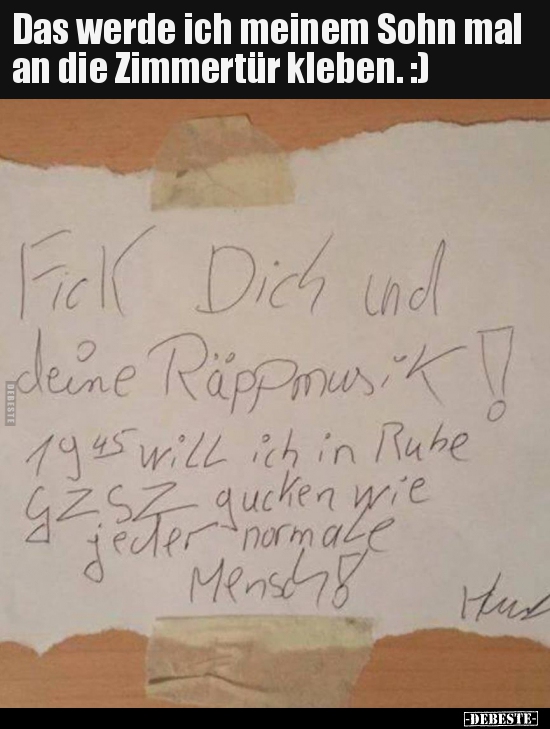 Das werde ich meinem Sohn mal
an die Zimmertür kleben. :)
Fick Dich und
deine Räppmusik!
19 45 will ich in Ruhe
GZSZ gucken wie
jeder normale
Mensch!
DEBESTE
-DEBESTE-